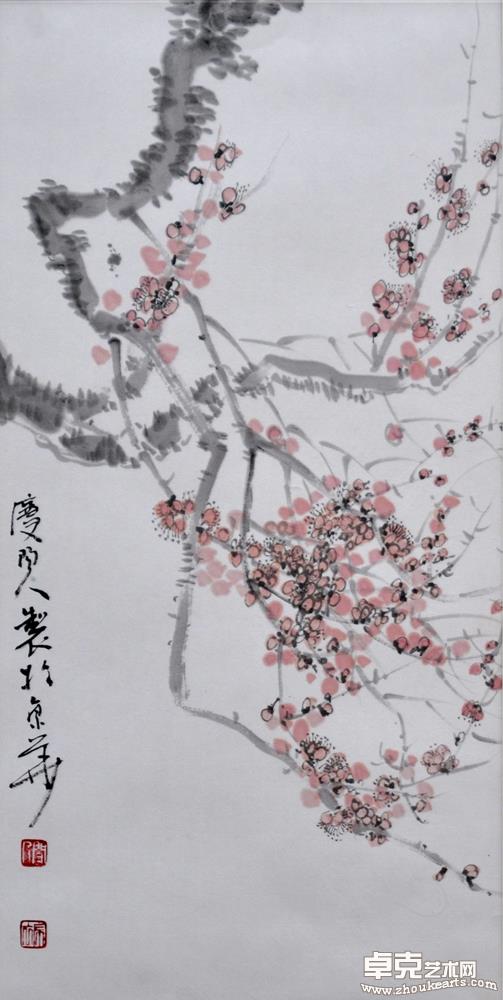 慶閑人製於京華
卓克艺术网
www.zhoukearts.com